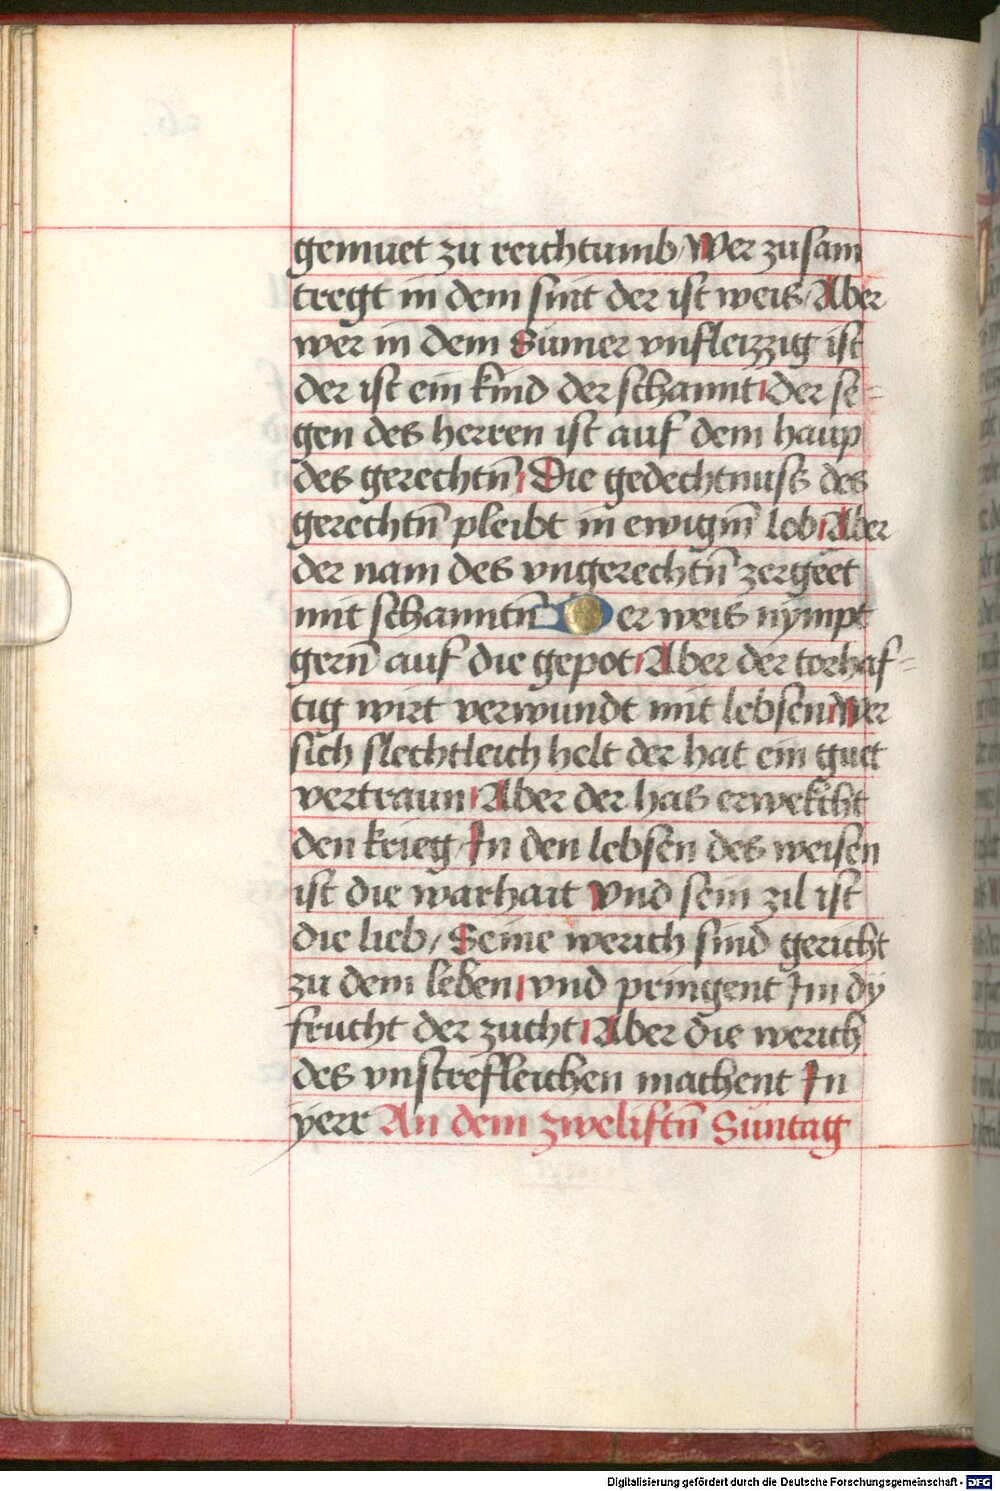 gemuet zu reichtumb / Wer zusam
tregt in dem snit der ist weis / Aber
wer in dem Sumer vnfleizzig ist
der ist ein kind der schannt / der se=
gen des herren ist auf dem haup
des gerechtn̄ / Die gedechtnuss des
gerechtn̄ pleibt in ewigm̄ lob / Aber
der nam des vngerechtn̄ zergeet
mit schanntn̄ Der weis nympt
gern̄ auf die gepot / Aber der torhaf=
tig wirt verwundt mit lebsen / Wer
sich slechtleich helt der hat ein guet
vertraun / Aber der has erwekcht
den krieg / In den lebsen des weisen
ist die warhait vnd sein zil ist
die lieb / Seine werich sind gericht
zu dem leben / vnd pringent Im dy
frucht der zucht / Aber die werich
des vnstrefleichen machent In
yerr An dem zweliftn̄ Suntag
Digitalisierung gefördert durch die Deutsche Forschungsgemeinschaft - DFG